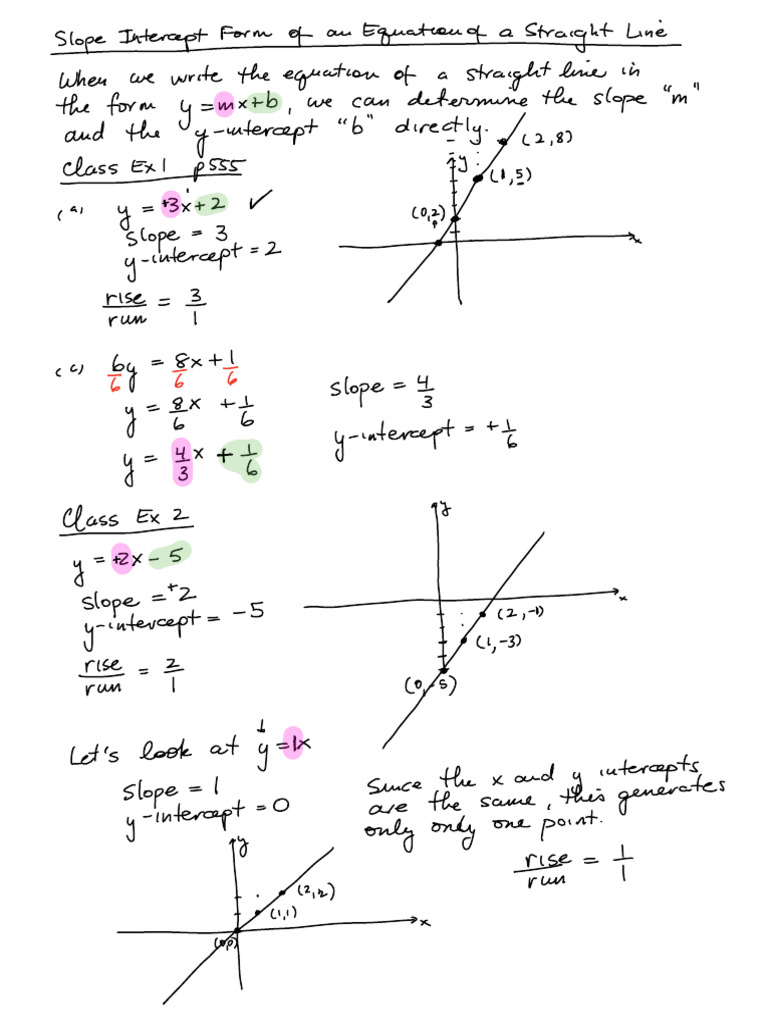 Slope Intercept Form of an Equation of a Straight Line
When we write the equation of a straight line in
the form y = mx+b, we can determine the slope "m"
and the y-intercept "b" directly.
Class Ex 1 p555
(a) y = +3x+2 ✓
slope = 3
y-intercept = 2
rise/run = 3/1
y
x
(2,8)
(1,5)
(0,2)
(c) 6y/6 = 8x/6 + 1/6
y = 8/6 x + 1/6
y = 4/3 x + 1/6
slope = 4/3
y-intercept = +1/6
Class Ex 2
y = +2x - 5
slope = +2
y-intercept = -5
rise/run = 2/1
y
x
(2,-1)
(1,-3)
(0,-5)
Let's look at y = 1x
slope = 1
y-intercept = 0
Since the x and y intercepts
are the same, this generates
only only one point.
rise/run = 1/1
y
x
(2,2)
(1,1)